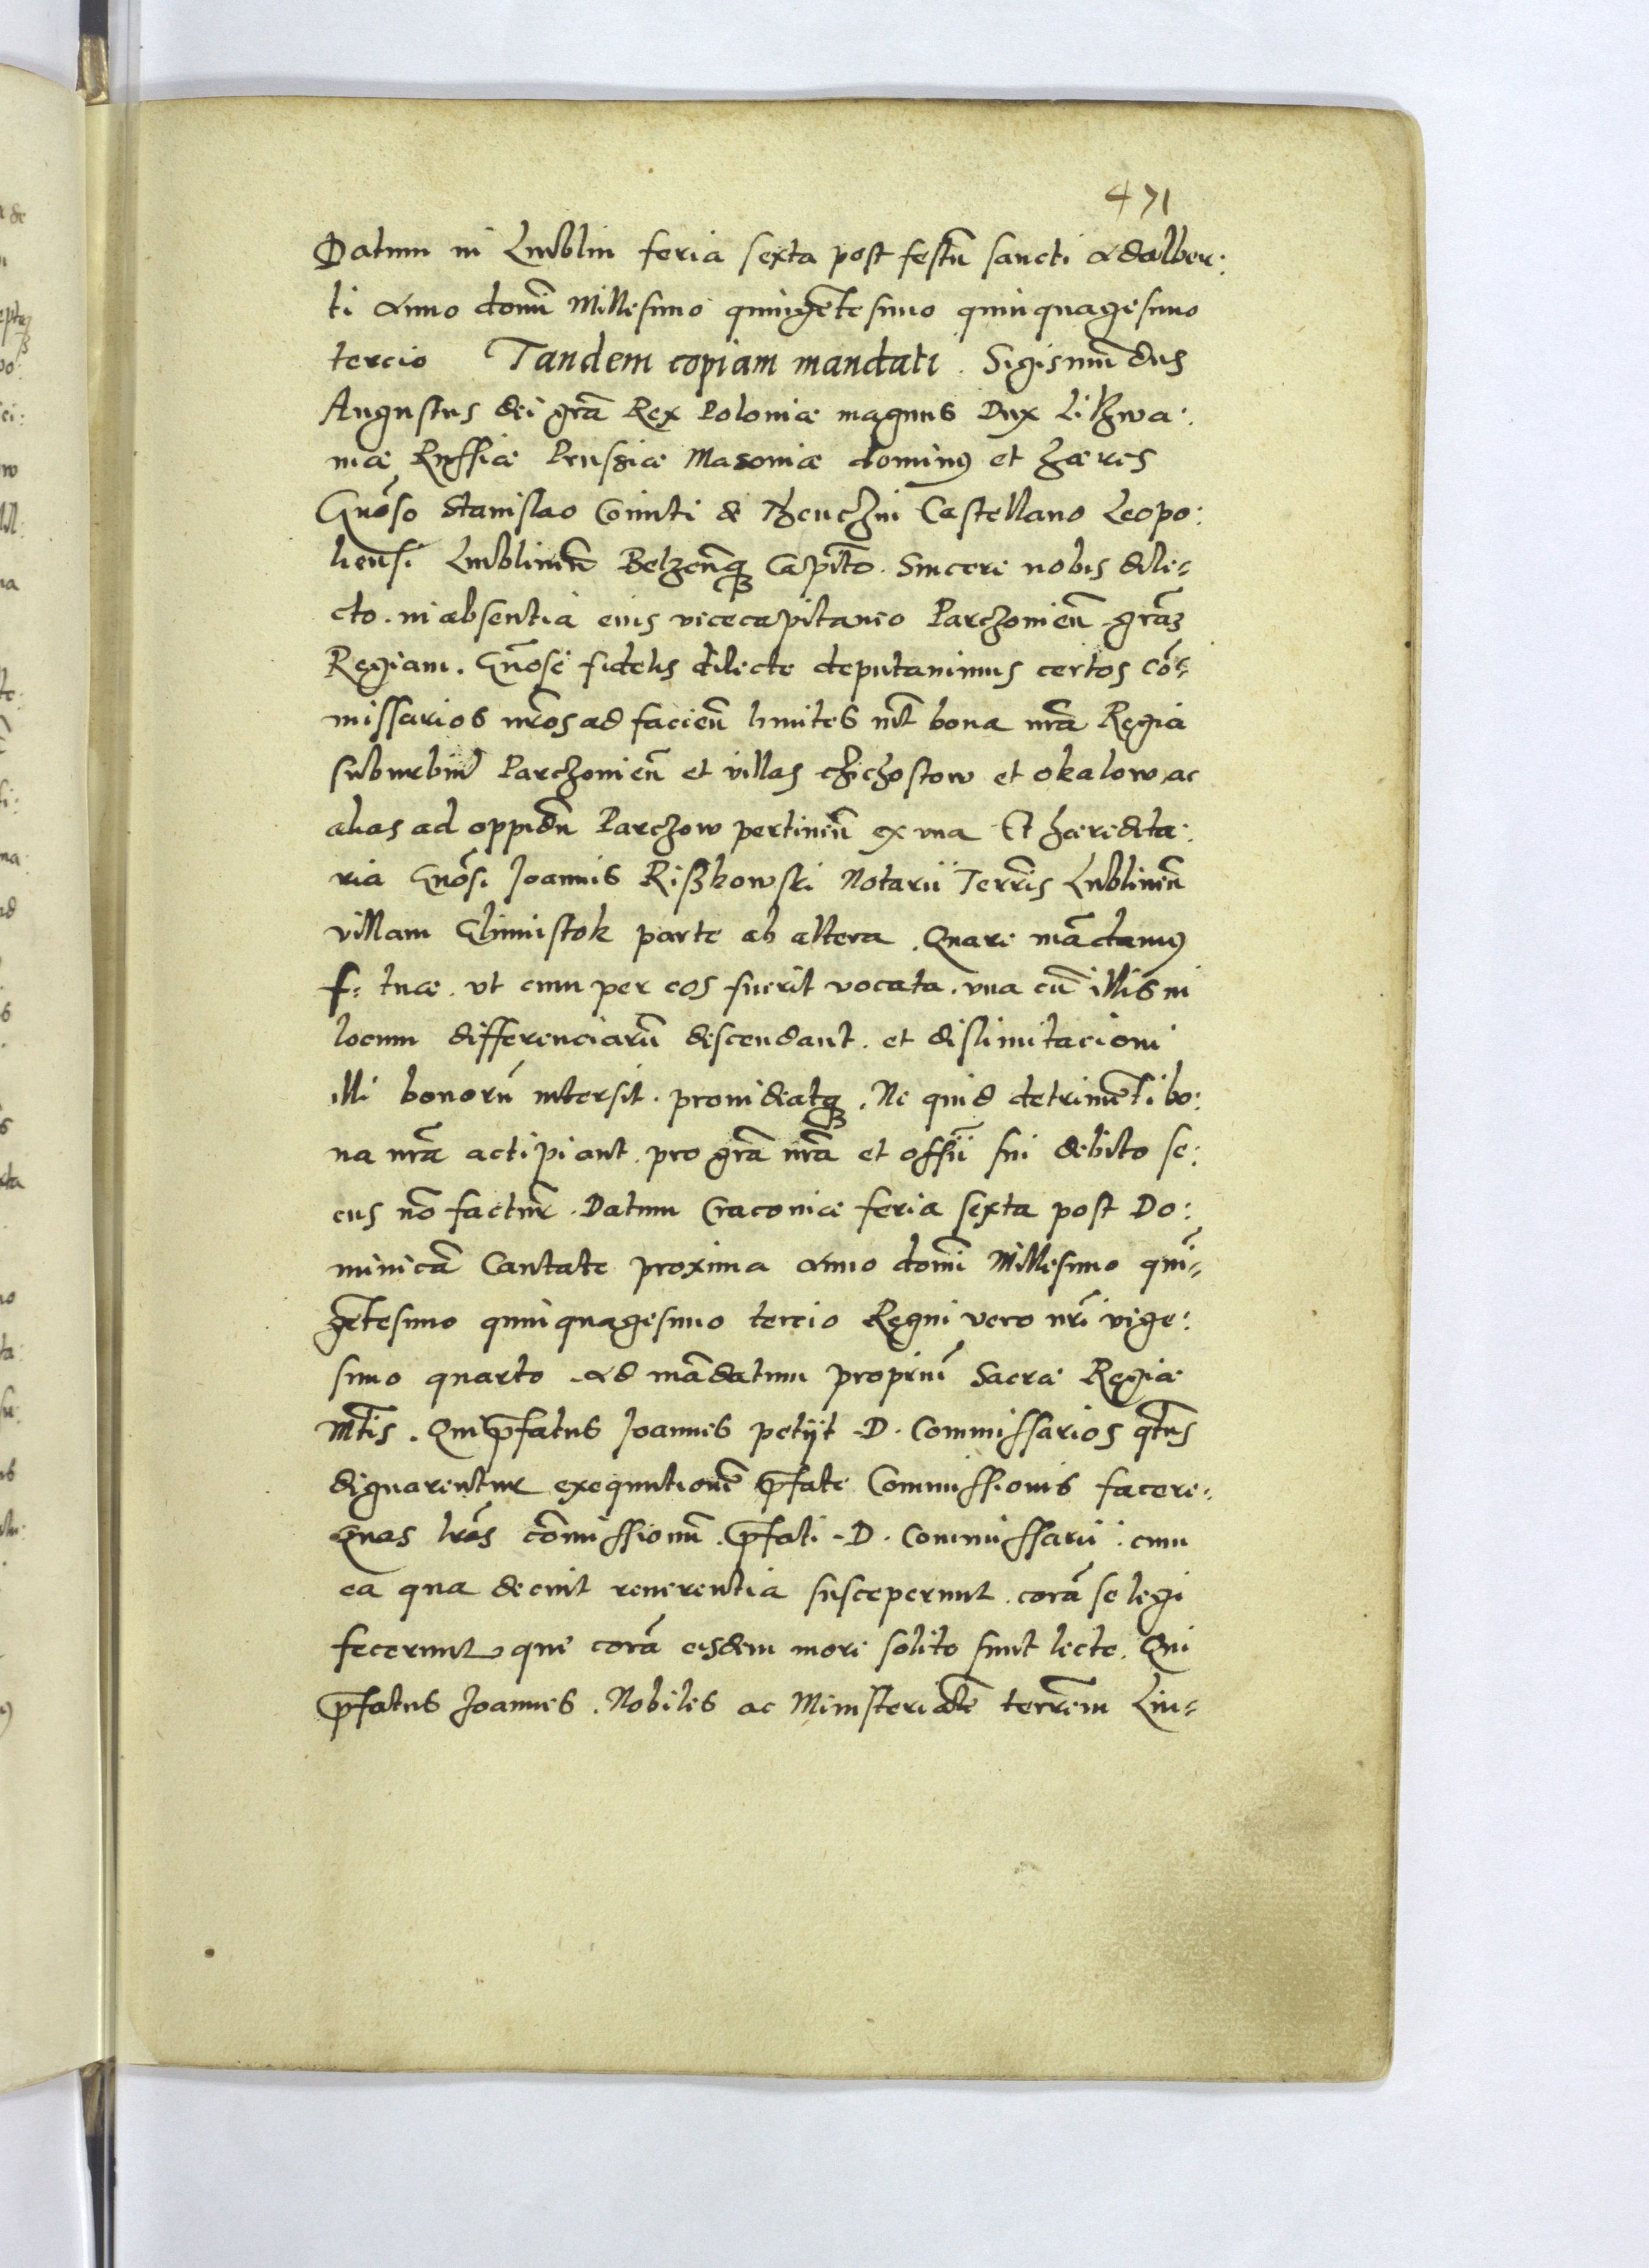 471
Datum in Lublin feria sexta post festũ sancti Adalber:
ti Anno domĩ Millesimo quingẽtesimo quinquagesimo
tercio Tandem copiam mandati. Sigismũdus
Augustus dei grã Rex Poloniæ magnus Dux Lithwa:
niæ Russiæ Prussiæ Masoniæ dominꝰ et hæres
Gnõso Stanislao Comiti de Thenchin Castellano Leopo:
lieñsi Lublineñ Belzeñq₃ Capitõ. Sincere nobis dile=
cto. in absentia eius vicecapitaneo Parchomieñ grãz
Regiam. Gnõse fidelis dilecte deputauimus certos cõ=
missarios nr̃os ad facieñ limites int̃ bona nr̃a Regia
suburbiũ Parchomieñ et villas chichostow et okalow, ac
alias ad oppidũ Parchow pertineñ ex vna Et hæredita:
ria Gnõsi Joannis Rißkowski Notarii Terrr̃is Lublineñ
villam Glinnistok parte ab altera. Quare mãdamꝰ
f: tuæ. vt cum per eos fuerit vocata. vna cũ illis in
locum differenciarũ descendant. et dislimitacioni
illi bonorũ intersit. prouideatq₃. Ne quid detrimẽti bo:
na nr̃a actipiant. pro grã nr̃a et offĩi sui debito se:
cus nõ factur̃. Datum Cracouiæ feria sexta post Do:
minicã Cantate proxima Anno domĩ Millesimo quĩ=
gẽtesimo quinquagesimo tercio Regni vero nr̃i vige:
simo quarto Ad mãdatum propriũ Sacræ Regiæ
Mt̃is. Qui p̃fatus Joannes petijt D. Commissarios qt̃us
dignarentur exequutionẽ p̃fate Commissionis facere.
Quas lr̃as cõmissionũ. p̃fati D. Commissarii. cum
ea qua decuit reuerentia susceperunt. corã se legi
fecerunt que corã eisdem more solito sunt lecte. Qui
p̃fatus Joannes. Nobiles ac Ministerialẽ terrr̃em Lu=